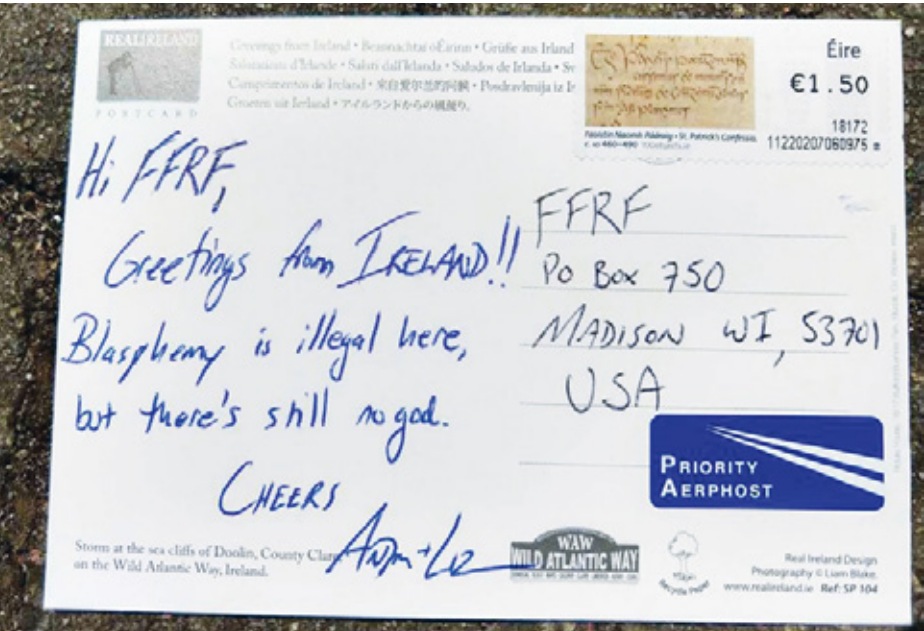 REALIRELAND
POSTCARD
Greetings from Ireland • Beannachtaí ó Éirinn • Grüße aus Irland
Salutations d'Irlande • Saluti dall'Irlanda • Saludos de Irlanda •
Cumprimentos de Ireland • 来自爱尔兰的问候 • Pozdravlenija iz
Groeten uit Ierland • アイルランドからの
Éire
€1.50
18172
11220207060975
Faoistin Naomh Pádraig • St. Patrick's Confessio
c. AD 460–490
Hi FFRF,
Greetings from IRELAND!!
Blasphemy is illegal here,
but there's still no god.
CHEERS
FFRF
PO BOX 750
MADISON WI, 53701
USA
PRIORITY
AERPHOST
Storm at the sea cliffs of Doolin, County Clare
on the Wild Atlantic Way, Ireland.
WAW
WILD ATLANTIC WAY
Real Ireland Design
Photography © Liam Blake.
www.realireland.ie Ref: SP 104